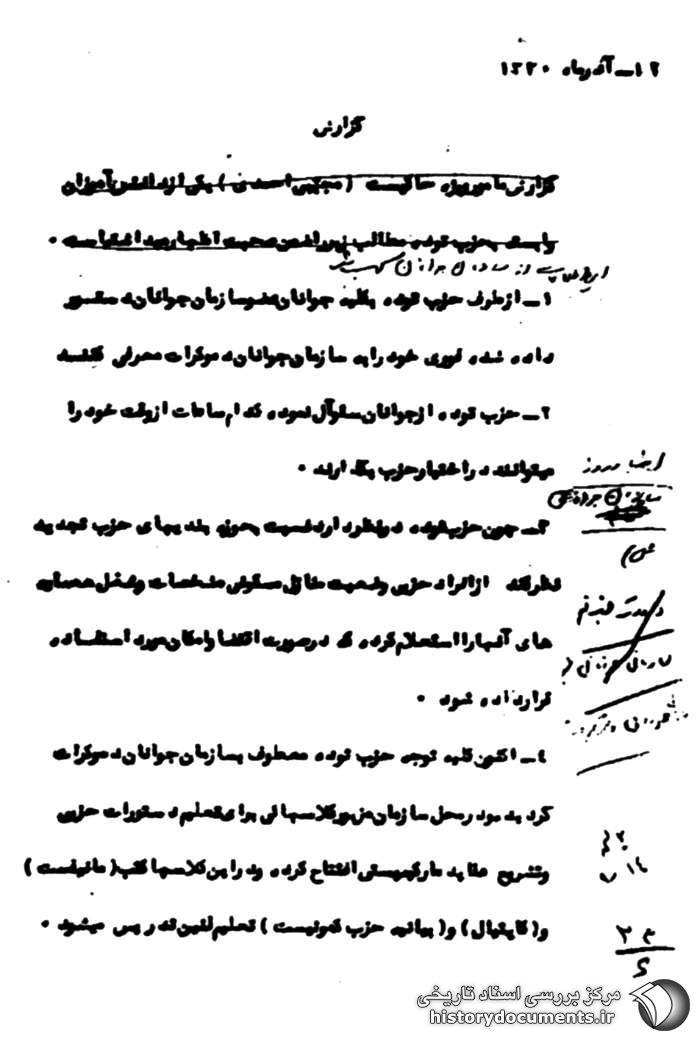 ۱۲ـ آذرماه ۱۳۳۰
گزارش
گزارش مامور ویژه حاکیست (مجتبی احمدی) یکی از دانش آموزان
وابسته بحزب توده مطالب زیر را ضمن صحبت اظهار میداشته است .
۱ـ از طرف حزب توده بکلیه جوانان عضو سازمان جوانان دستور
داده شده فوری خود را به سازمان جوانان دموکرات معرفی کنند
۲ـ حزب توده از جوانان سئوآل نموده کدام ساعات از وقت خود را
میتوانند در اختیار حزب بگذارند .
۳ـ چون حزب توده در نظر دارد نسبت بحوزه بندیهای حزب تجدید
نظر کند از افراد حزبی وضعیت منازل مسکونی مشخصات و شغل همسایه
های آنها را استعلام کرده که در صورت اقتضا و امکان مورد استفاده
قرار داده شود .
٤ـ اکنون کلیه توجه حزب توده معطوف بسازمان جوانان دموکرات
گردیده و در محل سازمان مزبور کلاسهائی برای تعلیم دستورات حزبی
وتشریح عقاید مارکسیستی افتتاح کرده و در این کلاسها کتب (مانیفست)
و(کاپیتال) و(بیانیه حزب کمونیست) تعلیم لنین تدریس میشود .
مرکز بررسی اسناد تاریخی
historydocuments.ir